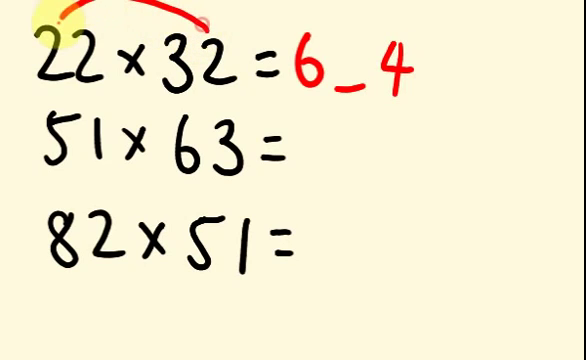 22×32=6_4
51×63=
82×51=